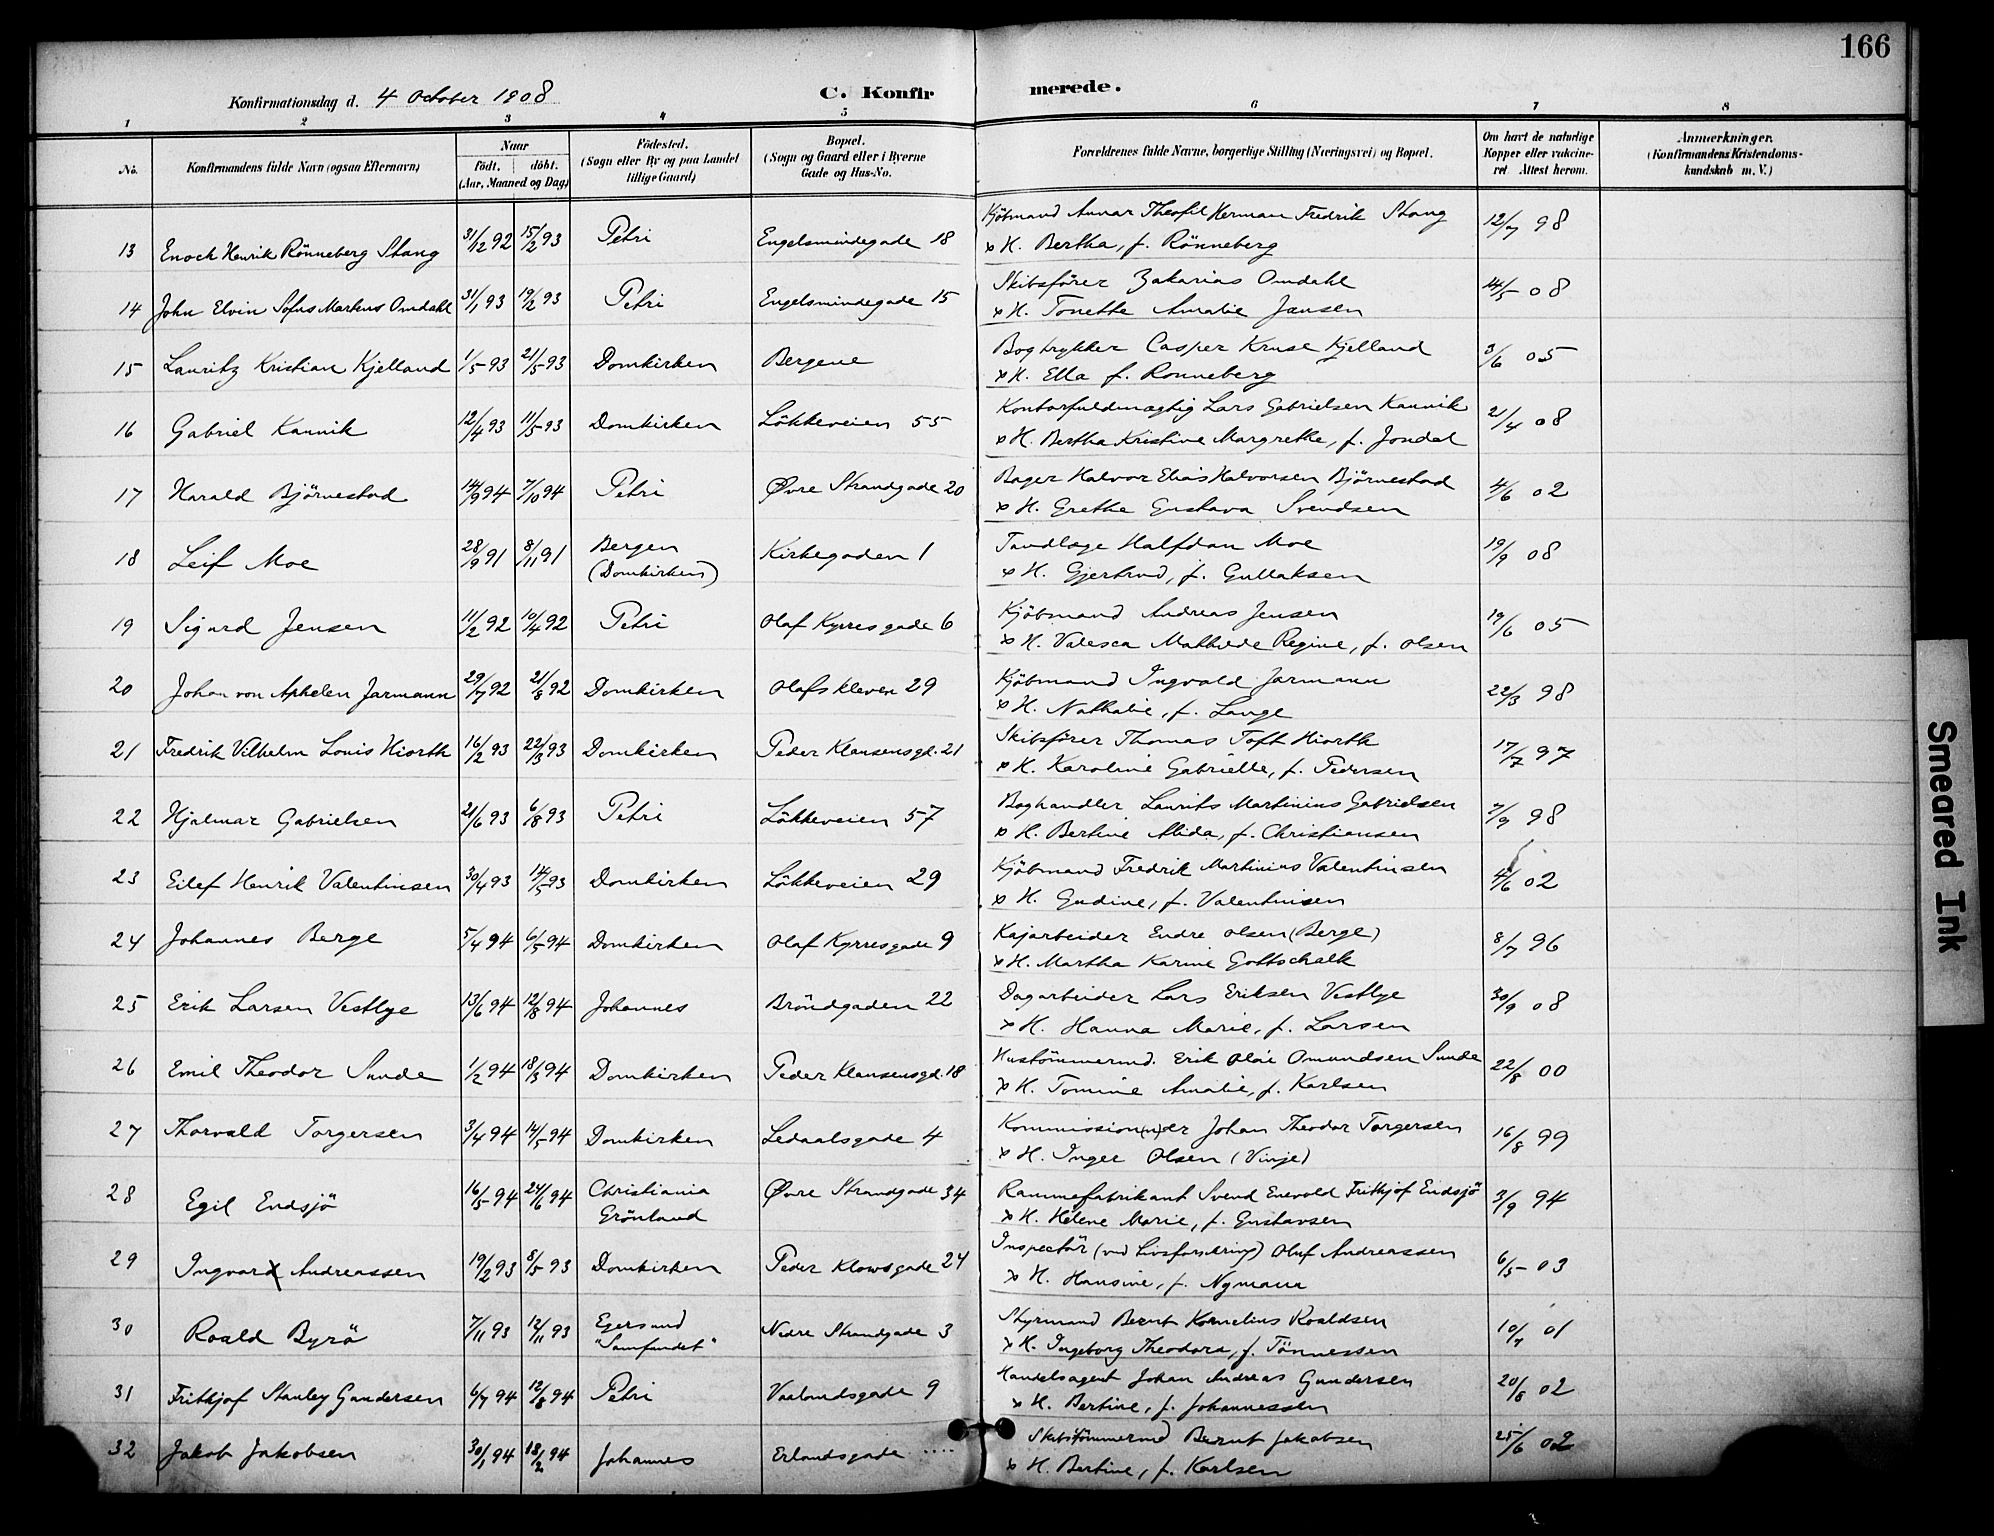 166
Konfirmationsdag d. 4 October 1908
C. Konfir merede.
1 2 3 4 5 6 7 8
No. Konfirmandens fulde Navn (ogsaa Efternavn) Naar født. døbt. (Aar, Maaned og Dag) Fødested. (Sogn eller By og paa Landet tillige Gaard) Bopæl. (Sogn og Gaard eller i Byerne Gade og Hus-No. Forældrenes fulde Navne, borgerlige Stilling (Næringsvei) og Bopæl. Om havt de naturlige Kopper eller vakcineret. Attest herom. Anmærkninger. (Konfirmandens Kristendomskundskab m. V.)
13 Enoch Henrik Rönneberg Stang 31/12 92 15/2 93 Petri Engelsmindegade 18 Kjöbmand Annar Theofil Herman Fredrik Stang 12/7 98
x H. Bertha, f. Rönneberg
14 John Elvin Sofus Markus Omdahl 31/1 93 19/2 93 Petri Engelsmindegade 15 Skibsförer Zakarias Omdahl 14/5 08
x H. Tonette Amalie Jansen
15 Lauritz Kristian Kjelland 1/5 93 21/5 93 Domkirken Bergene Bogtrykker Casper Kruse Kjelland 3/6 05
x H. Ella f. Ronneberg
16 Gabriel Kannik 12/4 93 11/5 93 Domkirken Lökkeveien 55 Kontorfuldmægtig Lars Gabrielsen Kannik 21/4 08
x H. Bertha Kristine Margrethe, f. Jondal
17 Harald Björnestad 14/9 94 7/10 94 Petri Øvre Strandgade 20 Bager Halvor Elias Halvorsen Björnestad 4/6 02
x H. Grethe Gustava Svendsen
18 Leif Moe 28/9 91 8/11 91 Bergen (Domkirken) Kirkegaden 1 Tandlæge Halfdan Moe 19/9 08
x H. Gjertrud, f. Gullaksen
19 Sigurd Jensen 11/2 92 10/4 92 Petri Olaf Kyrres gade 6 Kjöbmand Andreas Jensen 19/6 05
x H. Valesca Mathilde Regine, f. Olsen
20 Johan von Aphelen Jarmann 29/7 92 21/8 92 Domkirken Olafs Kleven 29 Kjöbmand Ingvald Jarmann 22/3 98
x H. Nathalie, f. Lange
21 Fredrik Vilhelm Louis Hiorth 16/2 93 22/3 93 Domkirken Peder Klausensgd. 21 Skibsförer Thomas Toft Hiorth 17/7 97
x H. Karoline Gabrielle, f. Pedersen
22 Hjalmar Gabrielsen 21/6 93 6/8 93 Petri Lökkeveien 57 Boghandler Laurits Martinius Gabrielsen 7/9 98
x H. Bertine Alida, f. Christiansen
23 Eilef Henrik Valentinsen 30/4 93 14/5 93 Domkirken Lökkeveien 29 Kjöbmand Fredrik Martinius Valentinsen 4/6 02
x H. Gudine, f. Valentinsen
24 Johannes Berge 5/4 94 6/5 94 Domkirken Olaf Kyrresgade 9 Kajarbeider Endre Olsen (Berge) 8/7 96
x H. Martha Karine Gottschalk
25 Erik Larsen Vestlye 13/6 94 12/8 94 Johannes Bröndgaden 22 Dagarbeider Lars Eriksen Vestlye 30/9 08
x H. Hanna Marie, f. Larsen
26 Emil Theodor Sunde 1/2 94 18/3 94 Domkirken Peder Klausensgd. 18 Hustömmermd. Erik Olai Omundsen Sunde 22/8 00
x H. Tomine Amalie, f. Karlsen
27 Thorvald Torgersen 3/4 94 14/5 94 Domkirken Ledaalsgade 4 Kommission(n)ær Johan Theodor Torgersen 16/8 99
x H. Inger Olsen (Vinje)
28 Egil Endsjö 16/5 94 24/6 94 Christiania Grönland Øvre Strandgade 34 Rammefabrikant Svend Enevold Frithjof Endsjö 3/9 94
x H. Helene Marie, f. Gustavsen
29 Ingvard Andreassen 19/2 93 8/5 93 Domkirken Peder Klowsgade 24 Inspectör (ved Livsforsikring) Oluf Andreassen 6/5 03
x H. Hansine, f. Nymann
30 Roald Byrö 7/11 93 12/11 93 Egersund "Samfundet" Nedre Strandgade 3 Styrmand Bernt Kornelius Roaldsen 10/7 01
x H. Ingeborg Theodora, f. Tönnessen
31 Frithjof Stanley Gundersen 6/7 94 12/8 94 Petri Vaalandsgade 9 Handelsagent Johan Andreas Gundersen 20/8 02
x H. Bertine, f. Johannessen
32 Jakob Jakobsen 30/1 94 18/2 94 Johannes Erlandsgade .... Skibstömmermd Bernt Jakobsen 25/6 02
x H. Bertine, f. Karlsen
Smeared Ink